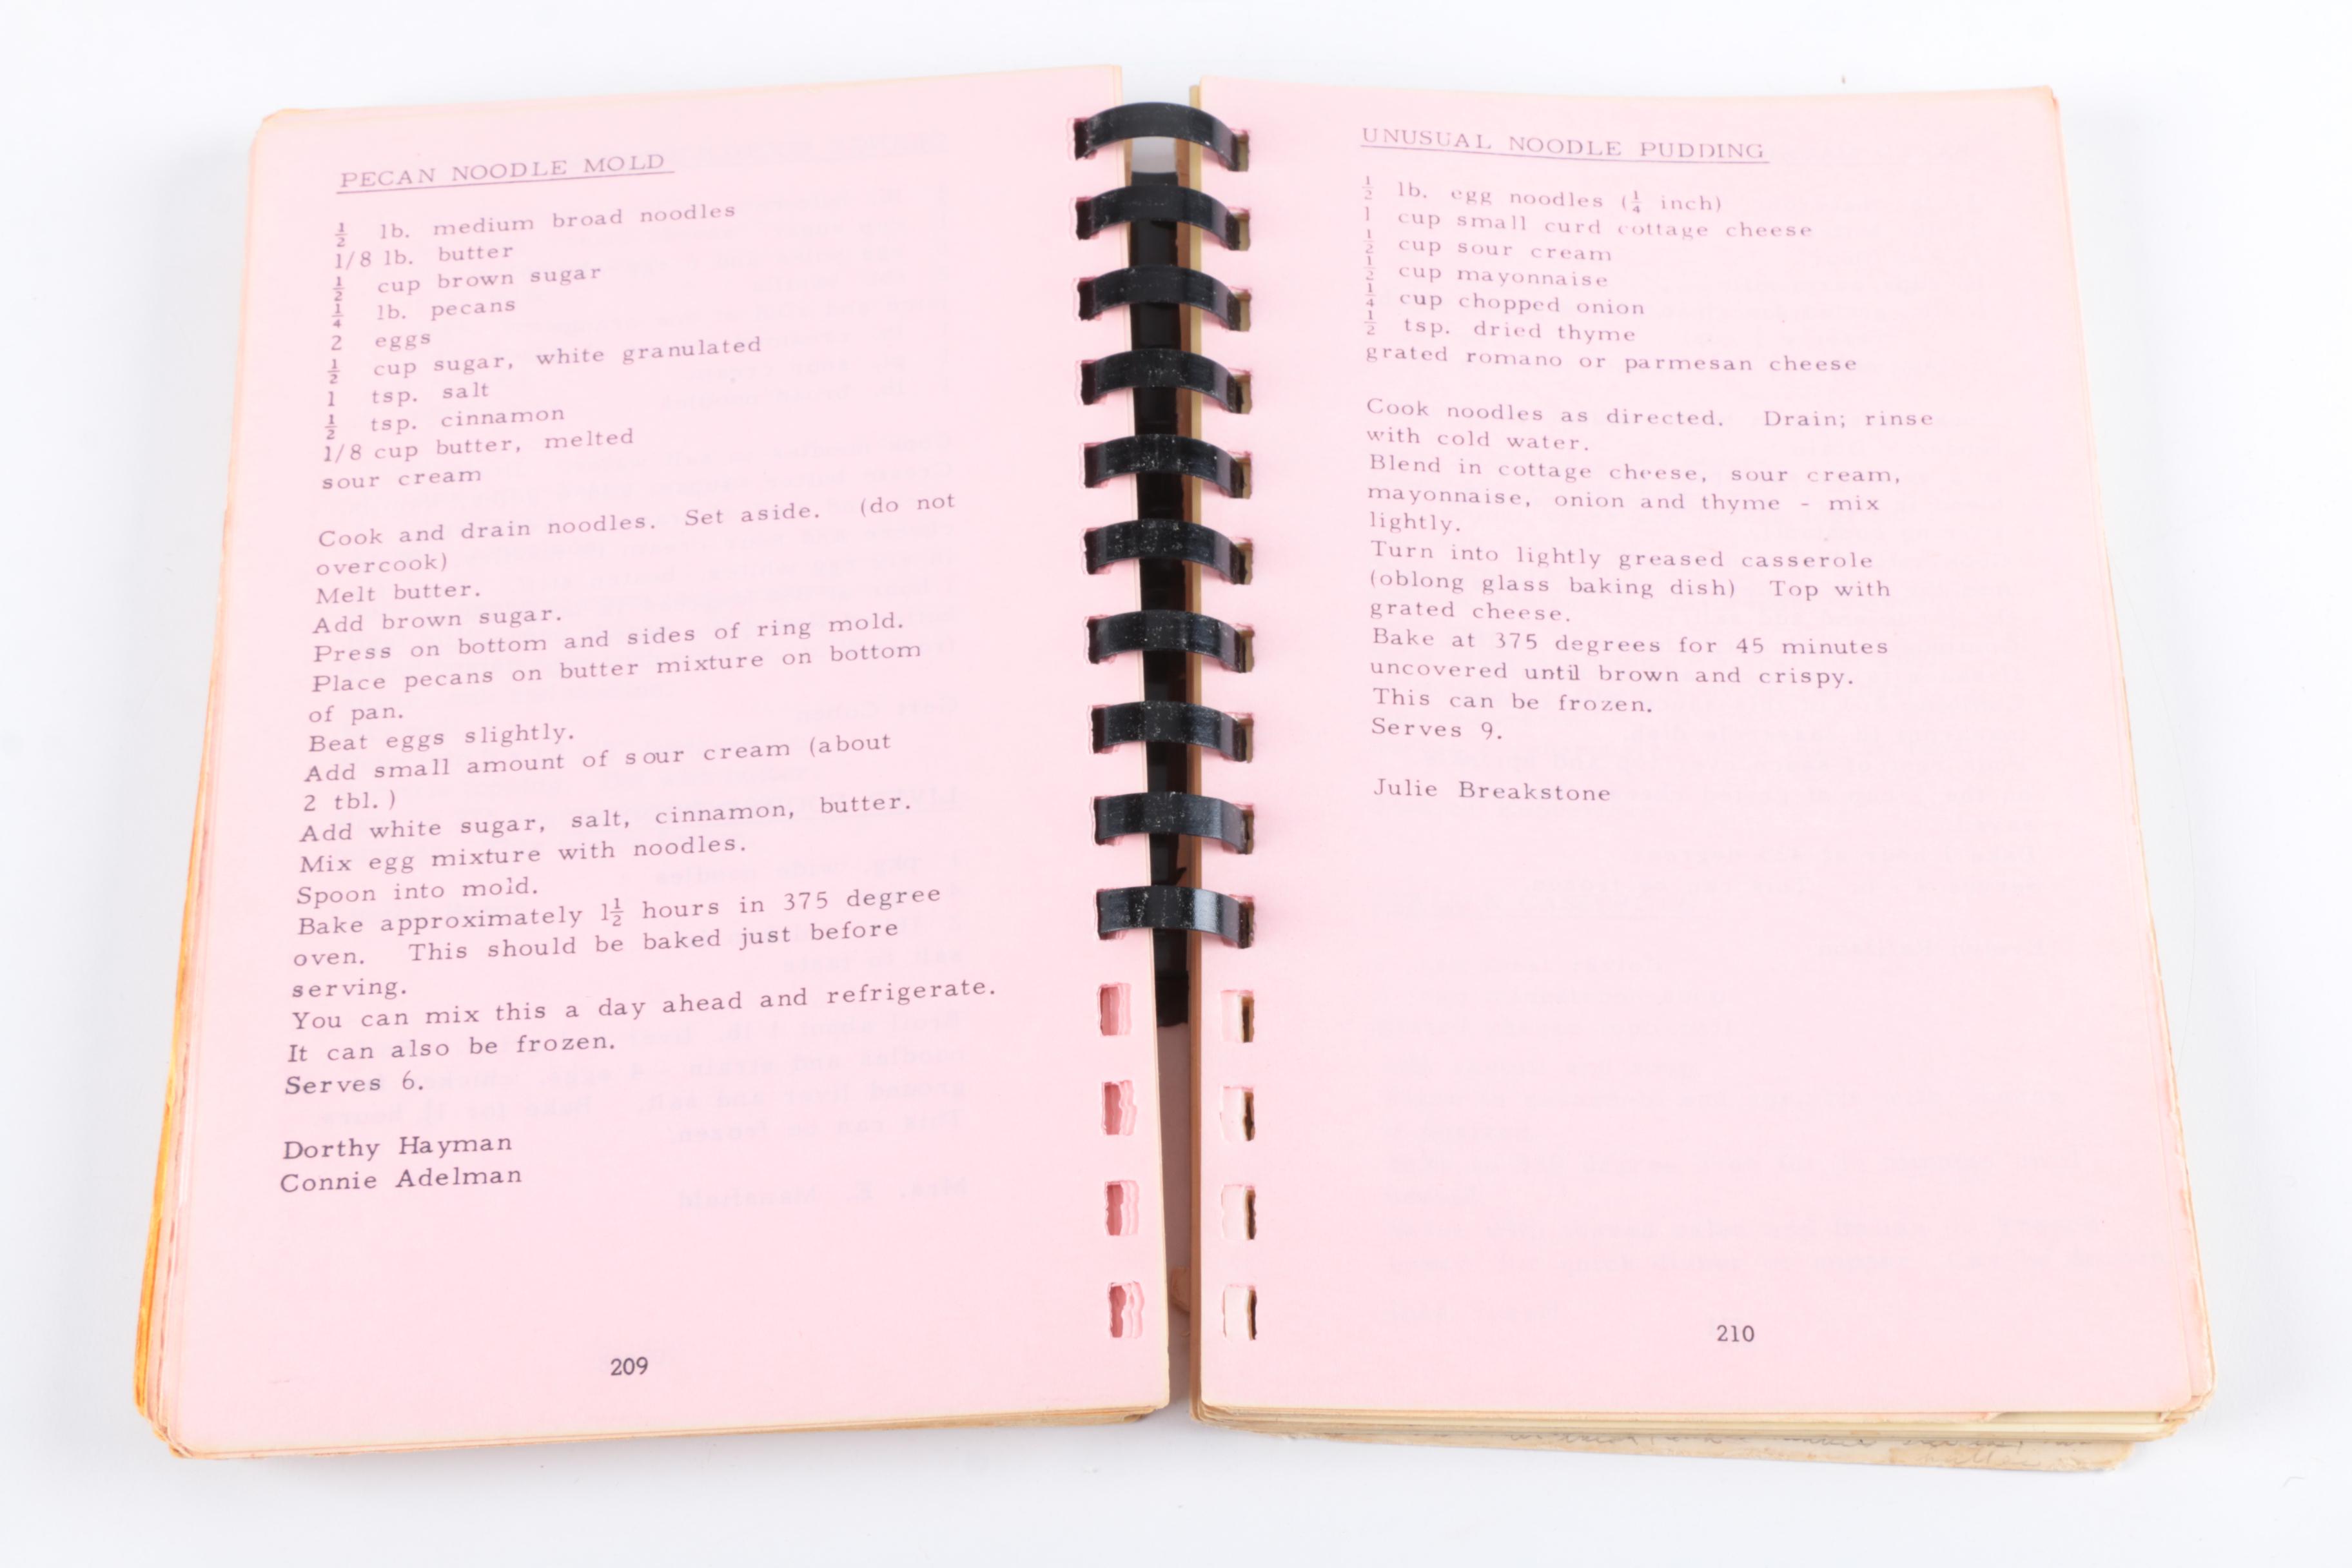 PECAN NOODLE MOLD
½ lb. medium broad noodles
1/8 lb. butter
½ cup brown sugar
¼ lb. pecans
2 eggs
½ cup sugar, white granulated
1 tsp. salt
½ tsp. cinnamon
1/8 cup butter, melted
sour cream
Cook and drain noodles. Set aside. (do not
overcook)
Melt butter.
Add brown sugar.
Press on bottom and sides of ring mold.
Place pecans on butter mixture on bottom
of pan.
Beat eggs slightly.
Add small amount of sour cream (about
2 tbl.)
Add white sugar, salt, cinnamon, butter.
Mix egg mixture with noodles.
Spoon into mold.
Bake approximately 1½ hours in 375 degree
oven. This should be baked just before
serving.
You can mix this a day ahead and refrigerate.
It can also be frozen.
Serves 6.
Dorthy Hayman
Connie Adelman
209
UNUSUAL NOODLE PUDDING
½ lb. egg noodles (¼ inch)
1 cup small curd cottage cheese
½ cup sour cream
½ cup mayonnaise
¼ cup chopped onion
½ tsp. dried thyme
grated romano or parmesan cheese
Cook noodles as directed. Drain; rinse
with cold water.
Blend in cottage cheese, sour cream,
mayonnaise, onion and thyme - mix
lightly.
Turn into lightly greased casserole
(oblong glass baking dish) Top with
grated cheese.
Bake at 375 degrees for 45 minutes
uncovered until brown and crispy.
This can be frozen.
Serves 9.
Julie Breakstone
210